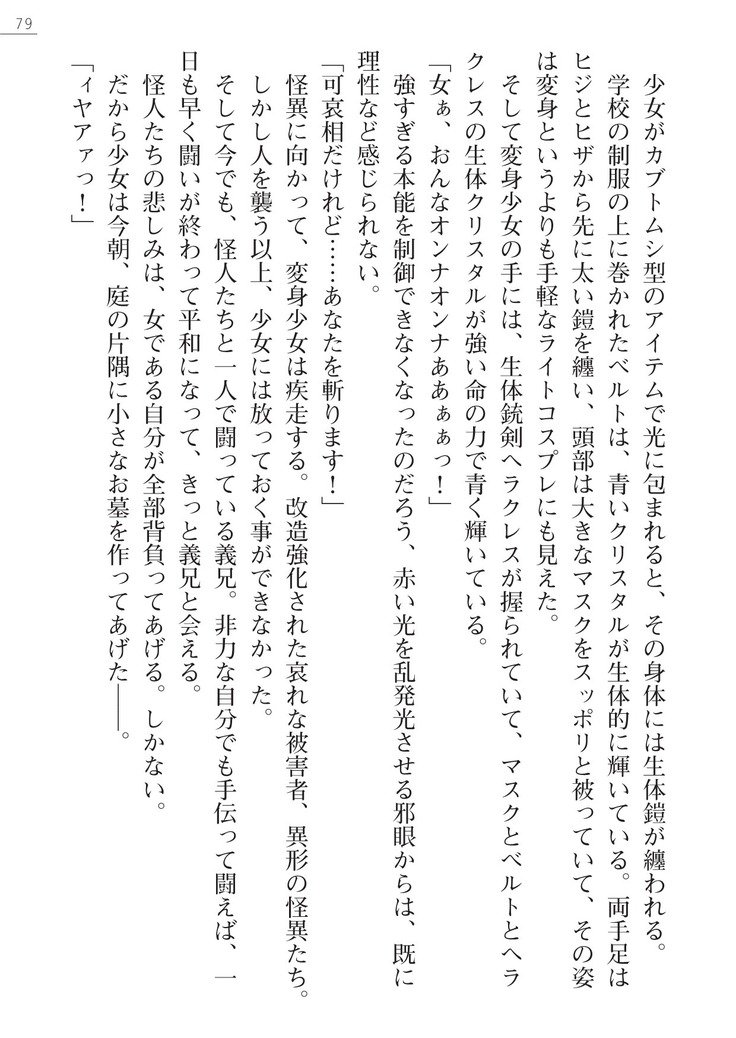 79
少女がカブトムシ型のアイテムで光に包まれると、その身体には生体鎧が纏われる。
学校の制服の上に巻かれたベルトは、青いクリスタルが生体的に輝いている。両手足は
ヒジとヒザから先に太い鎧を纏い、頭部は大きなマスクをスッポリと被っていて、その姿
は変身というよりも手軽なライトコスプレにも見えた。
そして変身少女の手には、生体銃剣ヘラクレスが握られていて、マスクとベルトとヘラ
クレスの生体クリスタルが強い命の力で青く輝いている。
「女ぁ、おんなオンナオンナああぁぁっ！」
強すぎる本能を制御できなくなったのだろう、赤い光を乱発光させる邪眼からは、既に
理性など感じられない。
「可哀相だけれど……あなたを斬ります！」
怪異に向かって、変身少女は疾走する。改造強化された哀れな被害者、異形の怪異たち。
しかし人を襲う以上、少女には放っておく事ができなかった。
そして今でも、怪人たちと一人で闘っている義兄。非力な自分でも手伝って闘えば、一
日も早く闘いが終わって平和になって、きっと義兄と会える。
怪人たちの悲しみは、女である自分が全部背負ってあげる。しかない。
だから少女は今朝、庭の片隅に小さなお墓を作ってあげた――。
「ィヤアァっ！」